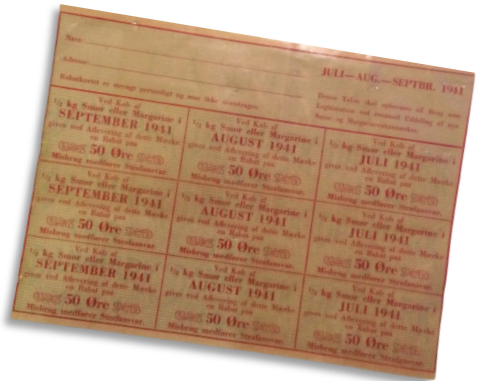 JULI—AUG.—SEPTBR. 1941
Navn
Adresse
Rabatkortet er strengt personligt og maa ikke overdrages.
Denne Talon skal opbevares
Legitimation ved eventuel Uddeling af nye
Smør- og Margarinerabatmærker.
Ved Køb af
½ kg Smør eller Margarine i
SEPTEMBER 1941
gives ved Aflevering af dette Mærke
en Rabat paa
50 Øre
Misbrug medfører Strafansvar.
Ved Køb af
½ kg Smør eller Margarine i
AUGUST 1941
gives ved Aflevering af dette Mærke
en Rabat paa
50 Øre
Misbrug medfører Strafansvar.
Ved Køb af
½ kg Smør eller Margarine i
JULI 1941
gives ved Aflevering af dette Mærke
en Rabat paa
50 Øre
Misbrug medfører Strafansvar.
Ved Køb af
½ kg Smør eller Margarine i
SEPTEMBER 1941
gives ved Aflevering af dette Mærke
en Rabat paa
50 Øre
Misbrug medfører Strafansvar.
Ved Køb af
½ kg Smør eller Margarine i
AUGUST 1941
gives ved Aflevering af dette Mærke
en Rabat paa
50 Øre
Misbrug medfører Strafansvar.
Ved Køb af
½ kg Smør eller Margarine i
JULI 1941
gives ved Aflevering af dette Mærke
en Rabat paa
50 Øre
Misbrug medfører Strafansvar.
Ved Køb af
½ kg Smør eller Margarine i
SEPTEMBER 1941
gives ved Aflevering af dette Mærke
en Rabat paa
50 Øre
Misbrug medfører Strafansvar.
Ved Køb af
½ kg Smør eller Margarine i
AUGUST 1941
gives ved Aflevering af dette Mærke
en Rabat paa
50 Øre
Misbrug medfører Strafansvar.
Ved Køb af
½ kg Smør eller Margarine i
JULI 1941
gives ved Aflevering af dette Mærke
en Rabat paa
50 Øre
Misbrug medfører Strafansvar.